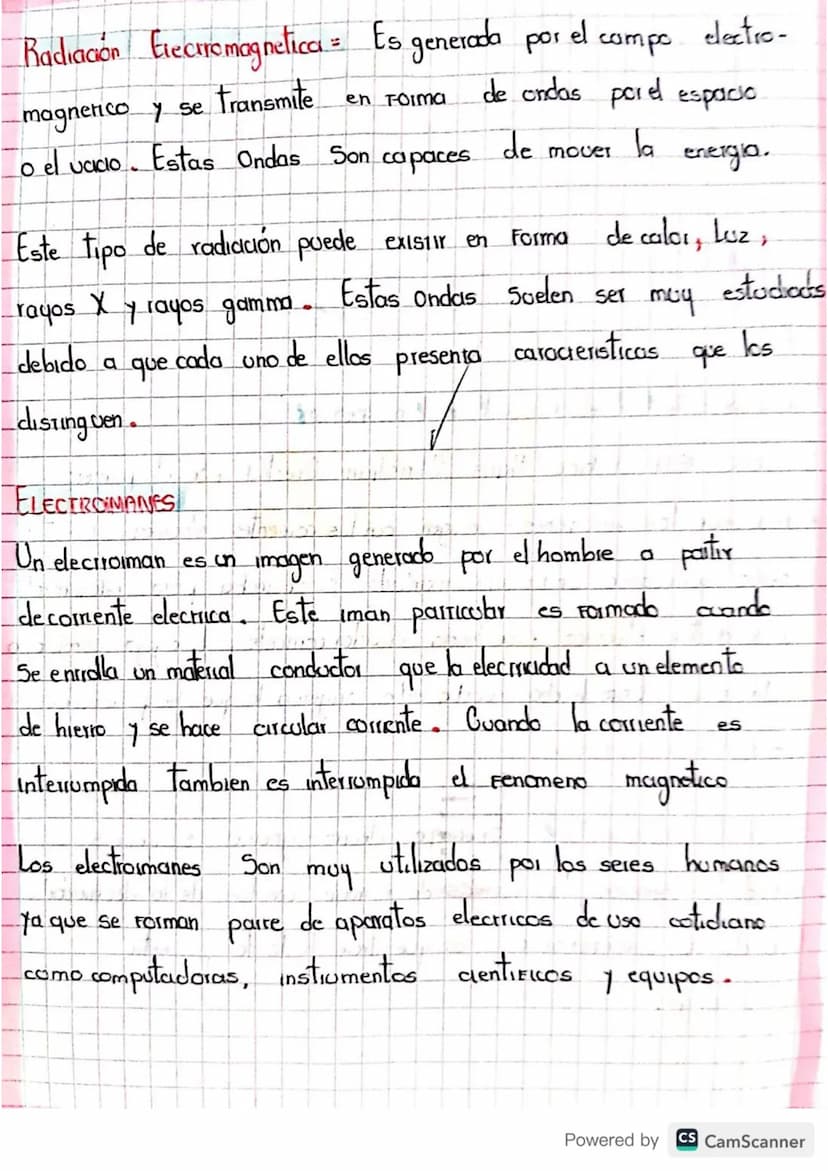 Radiación Electromagnetica = Es generada por el campo electro-
magnetico y se transmite en forma de ondas por el espacio
o el vacio. Estas Ondas Son capaces de mover la energia.
Este tipo de radiación puede existir en Forma de calor, Luz,
rayos X y rayos gamma. Estas Ondas Suelen ser muy estudiadas
debido a que cada uno de ellos presenta caracteristicas que los
distinguen.
ELECTROIMANES
Un electroiman es un imagen generado por el hombre a partir
de corriente electrica. Este iman particular es Formado cuando
Se enrolla un material conductor que la electricidad a un elemento
de hierro y se hace circular corriente. Cuando la corriente es
interrumpida tambien es interrumpido el Fenomeno magnetico
Los electroimanes Son muy utilizados por los seres humanos
ya que se Forman parte de aparatos electricos de uso cotidiano
como computadoras, instrumentos cientificos y equipos.
Powered by CS CamScanner